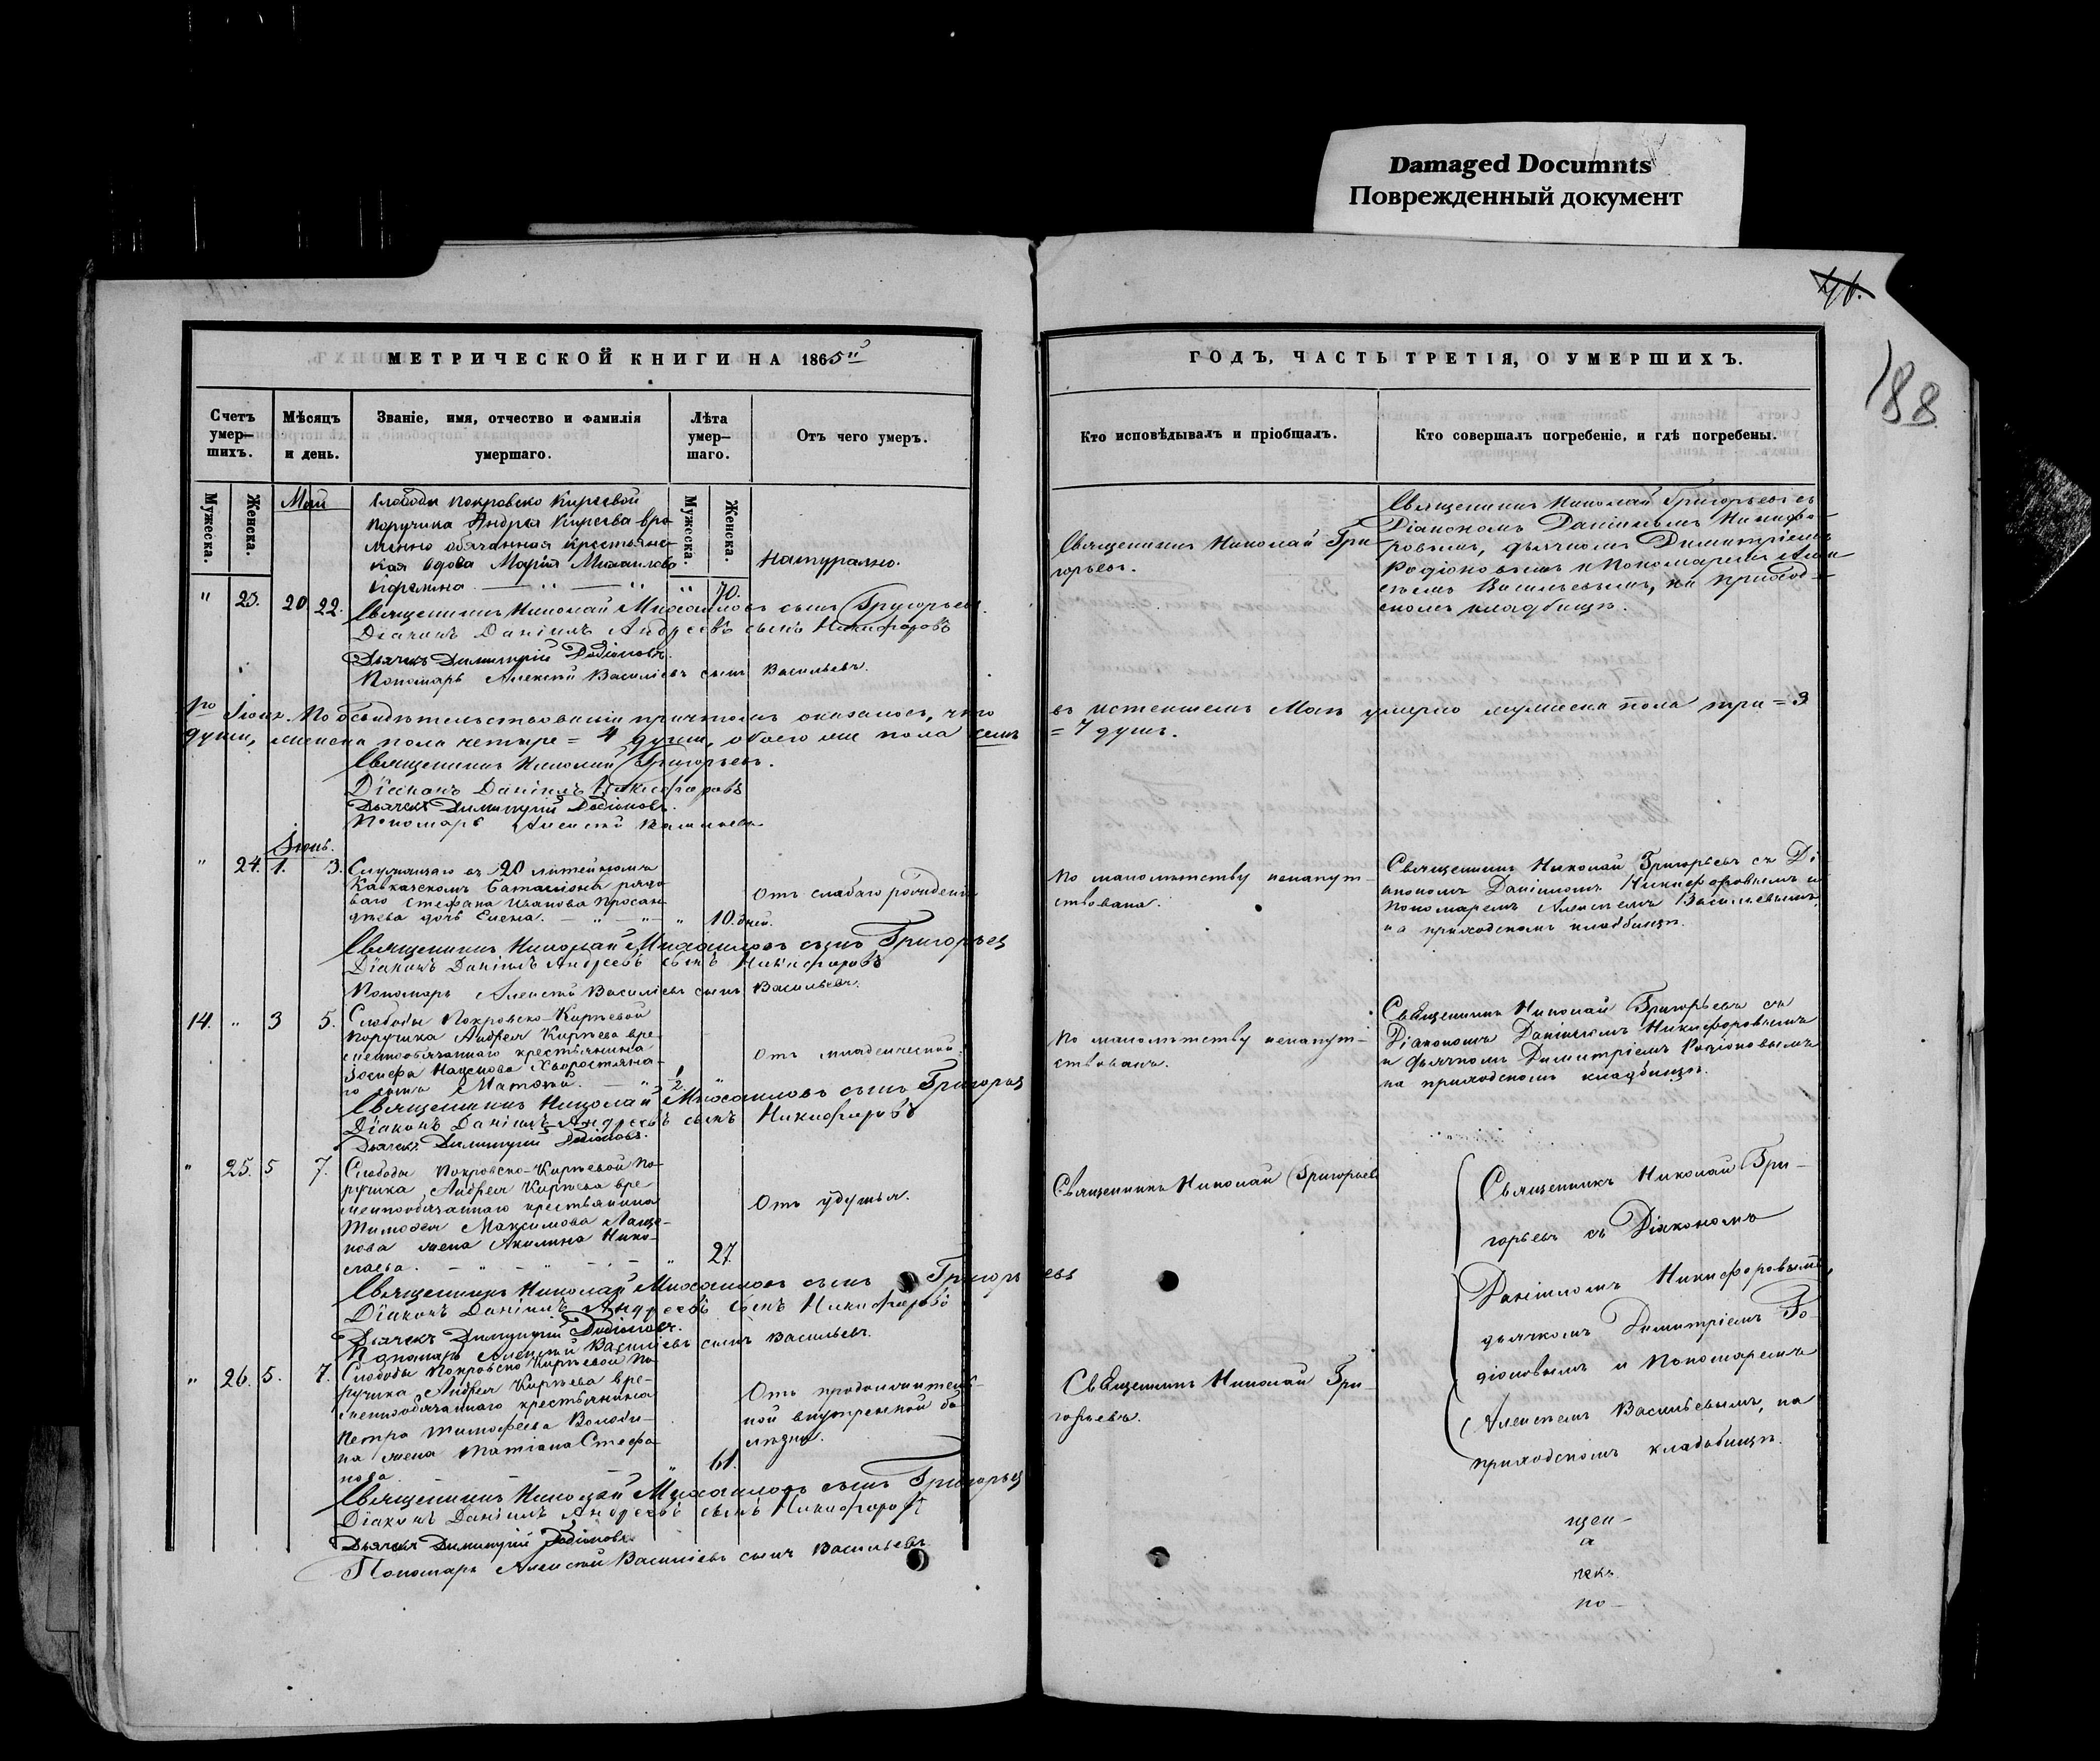 Damaged Documnts
Поврежденный документ
41.
188
МЕТРИЧЕСКОЙ КНИГИ НА 1865й
ГОДЪ, ЧАСТЬ ТРЕТІЯ, О УМЕРШИХЪ.
Счетъ умер-шихъ.
Мѣсяцъ и день.
Званіе, имя, отчество и фамилія умершаго.
Лѣта умер-шаго.
Отъ чего умеръ.
Кто исповѣдывалъ и пріобщалъ.
Кто совершалъ погребеніе, и гдѣ погребены.
Мужеска.
Женска.
Мужеска.
Женска.
Май
Слободы Покровско Кирѣевой
Поручика Андрея Кирѣева вре
менно обязанная крестьянс-
кая вдова Марія Михаилова
" 23. 20 22. " 70.
Натурално.
Священникъ Николай Гри-
горьевъ.
Священникъ Николай Григорьевъ съ
Діакономъ Даніиломъ Никифо-
ровымъ, дьячкомъ Димитріемъ
Родіоновымъ и Пономаремъ Алек
сѣемъ Васильевымъ, на приход-
скомъ кладбищѣ.
Священникъ Николай Михаиловъ сынъ Григорьевъ.
Діаконъ Даніилъ Андреевъ сынъ Никифоровъ
Дьячекъ Димитрій Родіоновъ.
Пономарь Алексѣй Василіевъ сынъ Васильевъ.
По освидѣтельствованіи причтомъ оказалось, что
въ истекшемъ Маѣ умерло мужеска пола три = 3
души, женска пола четыре = 4 души, обоего же пола семь
= 7 душъ.
Священникъ Николай Григорьевъ.
Діаконъ Даніилъ Никифоровъ
Дьячекъ Димитрій Родіоновъ.
Пономарь Алексѣй Васильевъ
Іюнь.
" 24. 1. 3.
Служащаго въ 20 линейномъ
Кавказскомъ баталіонѣ рядо
ваго Стефана Иванова
дочь Елена. " 10. дней.
Отъ слабаго рожденія
По малолѣтству ненапут-
ствована.
Священникъ Николай Григорьевъ съ Ді
акономъ Даніиломъ Никифоровымъ и
Пономаремъ Алексѣемъ Васильевымъ,
на приходскомъ кладбищѣ.
Священникъ Николай Михаиловъ сынъ Григорьевъ
Діаконъ Даніилъ Андреевъ сынъ Никифоровъ
Пономарь Алексѣй Василіевъ сынъ Васильевъ.
14. " 3 5.
Слободы Покровско-Кирѣевой
Поручика Андрея Кирѣева вре
меннообязаннаго крестьянина
Іосифа Хворостяна-
го сынъ 1/2. "
Отъ младенческой.
По малолѣтству ненапут-
ствованъ.
Священникъ Николай Григорьевъ съ
Діакономъ Даніиломъ Никифоровымъ
и дьячкомъ Димитріемъ Родіоновымъ
на приходскомъ кладбищѣ.
Священникъ Николай Михаиловъ сынъ Григорьевъ
Діаконъ Даніилъ Андреевъ сынъ Никифоровъ
Дьячекъ Димитрій Родіоновъ.
" 25. 5 7.
Слободы Покровско-Кирѣевой По-
ручика Андрея Кирѣева вре
меннообязаннаго крестьянина
Тимофея Максимова
жена Акилина Нико-
лаева. " 27.
Отъ удушья.
Священникъ Николай Григорьевъ
Священникъ Николай Гри-
горьевъ съ Діакономъ
Даніиломъ Никифоровымъ,
дьячкомъ Димитріемъ Ро-
діоновымъ и Пономаремъ
Алексѣемъ Васильевымъ, на
приходскомъ кладбищѣ.
Священникъ Николай Михаиловъ сынъ Григорьевъ
Діаконъ Даніилъ Андреевъ сынъ Никифоровъ
Дьячекъ Димитрій Родіоновъ.
Пономарь Алексѣй Василіевъ сынъ Васильевъ.
" 26. 5. 7.
Слободы Покровско Кирѣевой По-
ручика Андрея Кирѣева вре-
меннообязаннаго крестьянина
Петра Тимофеева Володи-
на жена Татіана Стефа-
нова. " 61.
Отъ продолжитель-
ной внутренной бо
лѣзни.
Священникъ Николай Гри-
горьевъ.
Священникъ Николай Михаиловъ сынъ Григорьевъ
Діаконъ Даніилъ Андреевъ сынъ Никифоровъ
Дьячекъ Димитрій Родіоновъ
Пономарь Алексѣй Василіевъ сынъ Васильевъ
щен-
а
чекъ
по-